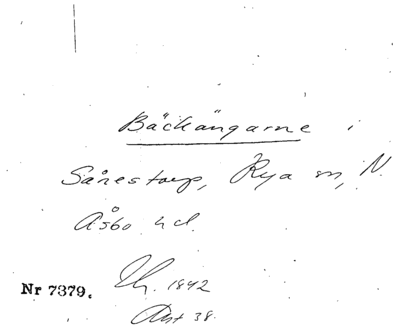 Bäckängarne i
Sånestorp, Rya sn, N.
Åsbo hd.
Nr 7379. Th. 1842
Akt 38.